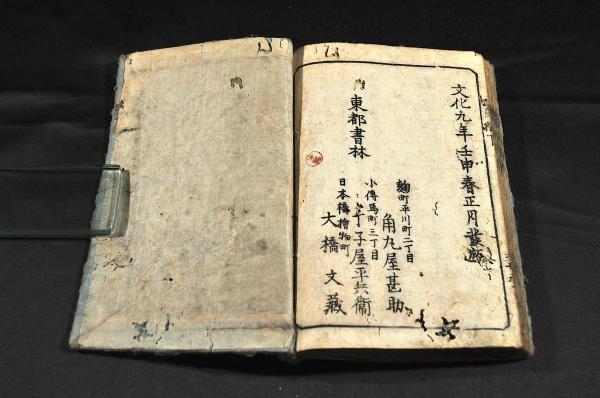 文化九年壬申春正月發販
東都書林
麹町平川町二丁目
角丸屋甚助
小傳馬町三丁目
子屋平兵衞
日本橋檜物町
大橋文藏